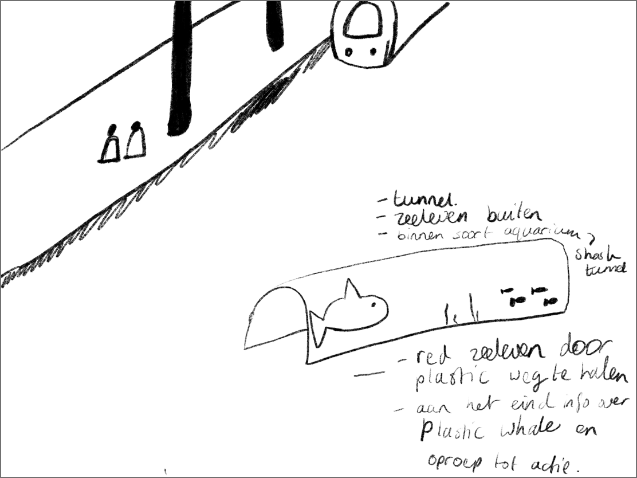 - tunnel.
- zeeleven buiten
- binnen soort aquarium →
shark
tunnel
- red zeeleven door
plastic weg te halen
- aan het eind info over
plastic whale en
oproep tot actie.